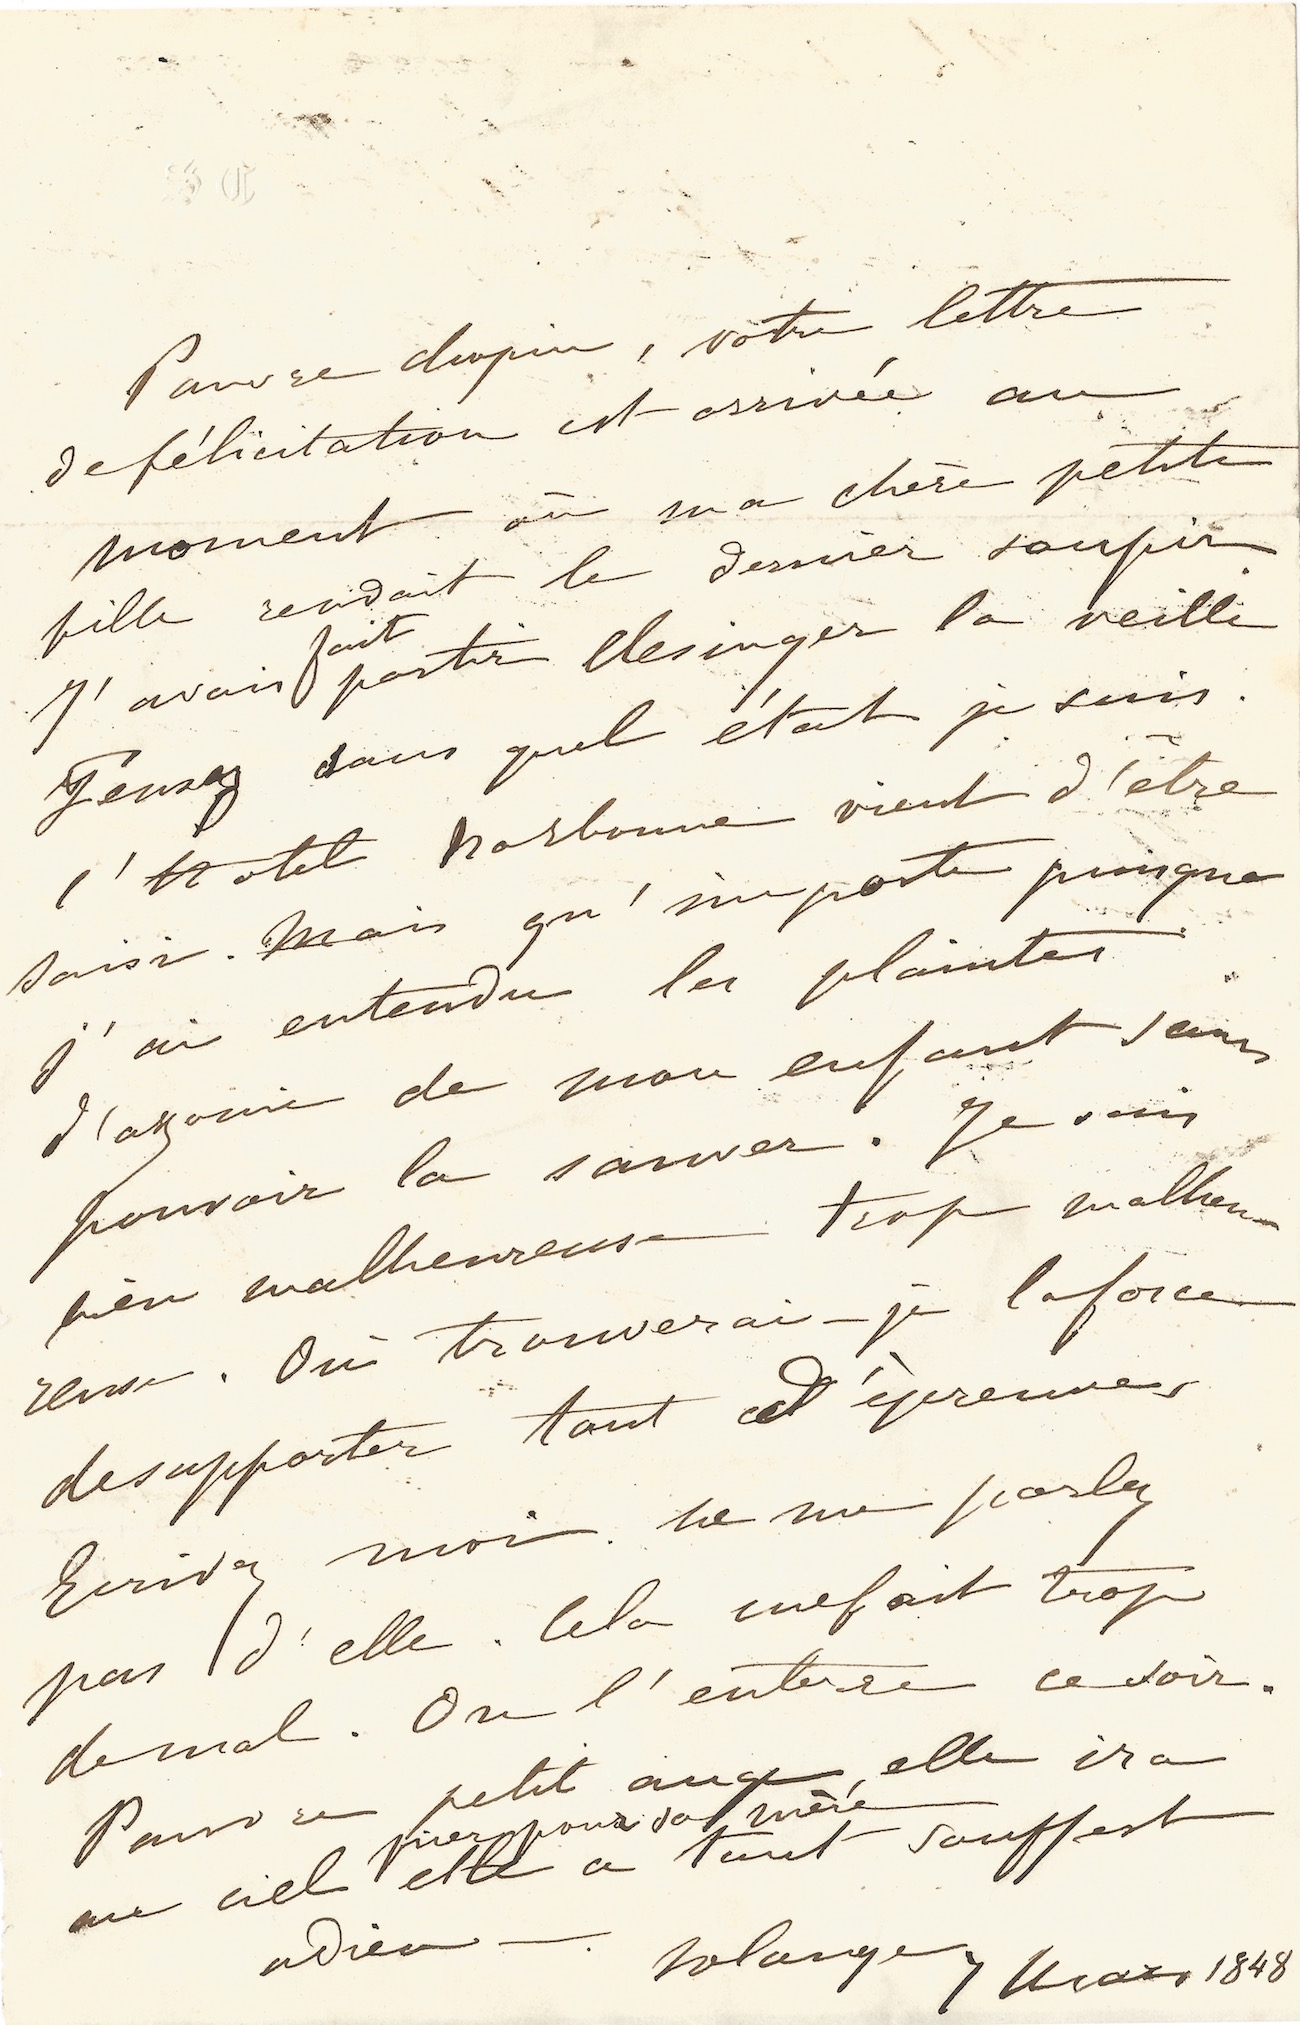 Pauvre chopin, votre lettre
de félicitation est arrivée au
moment où ma chère petite
fille rendait le dernier soupir
J'avais fait partir Clesinger la veille
Pensez dans quel état je suis.
l'Hotel Narbonne vient d'être
saisi. Mais qu'importe puisque
j'ai entendu les plaintes
d'agonie de mon enfant sans
pouvoir la sauver. Je suis
bien malheureuse trop malheu-
reuse. Où trouverai-je la force
de supporter tant d'épreuves
Ecrivez moi. ne me parlez
pas d'elle. Cela me fait trop
de mal. On l'enterre ce soir.
Pauvre petit ange, elle ira
prier pour sa mère
au ciel elle a tant souffert
adieu —.
Solange 7 Mars 1848